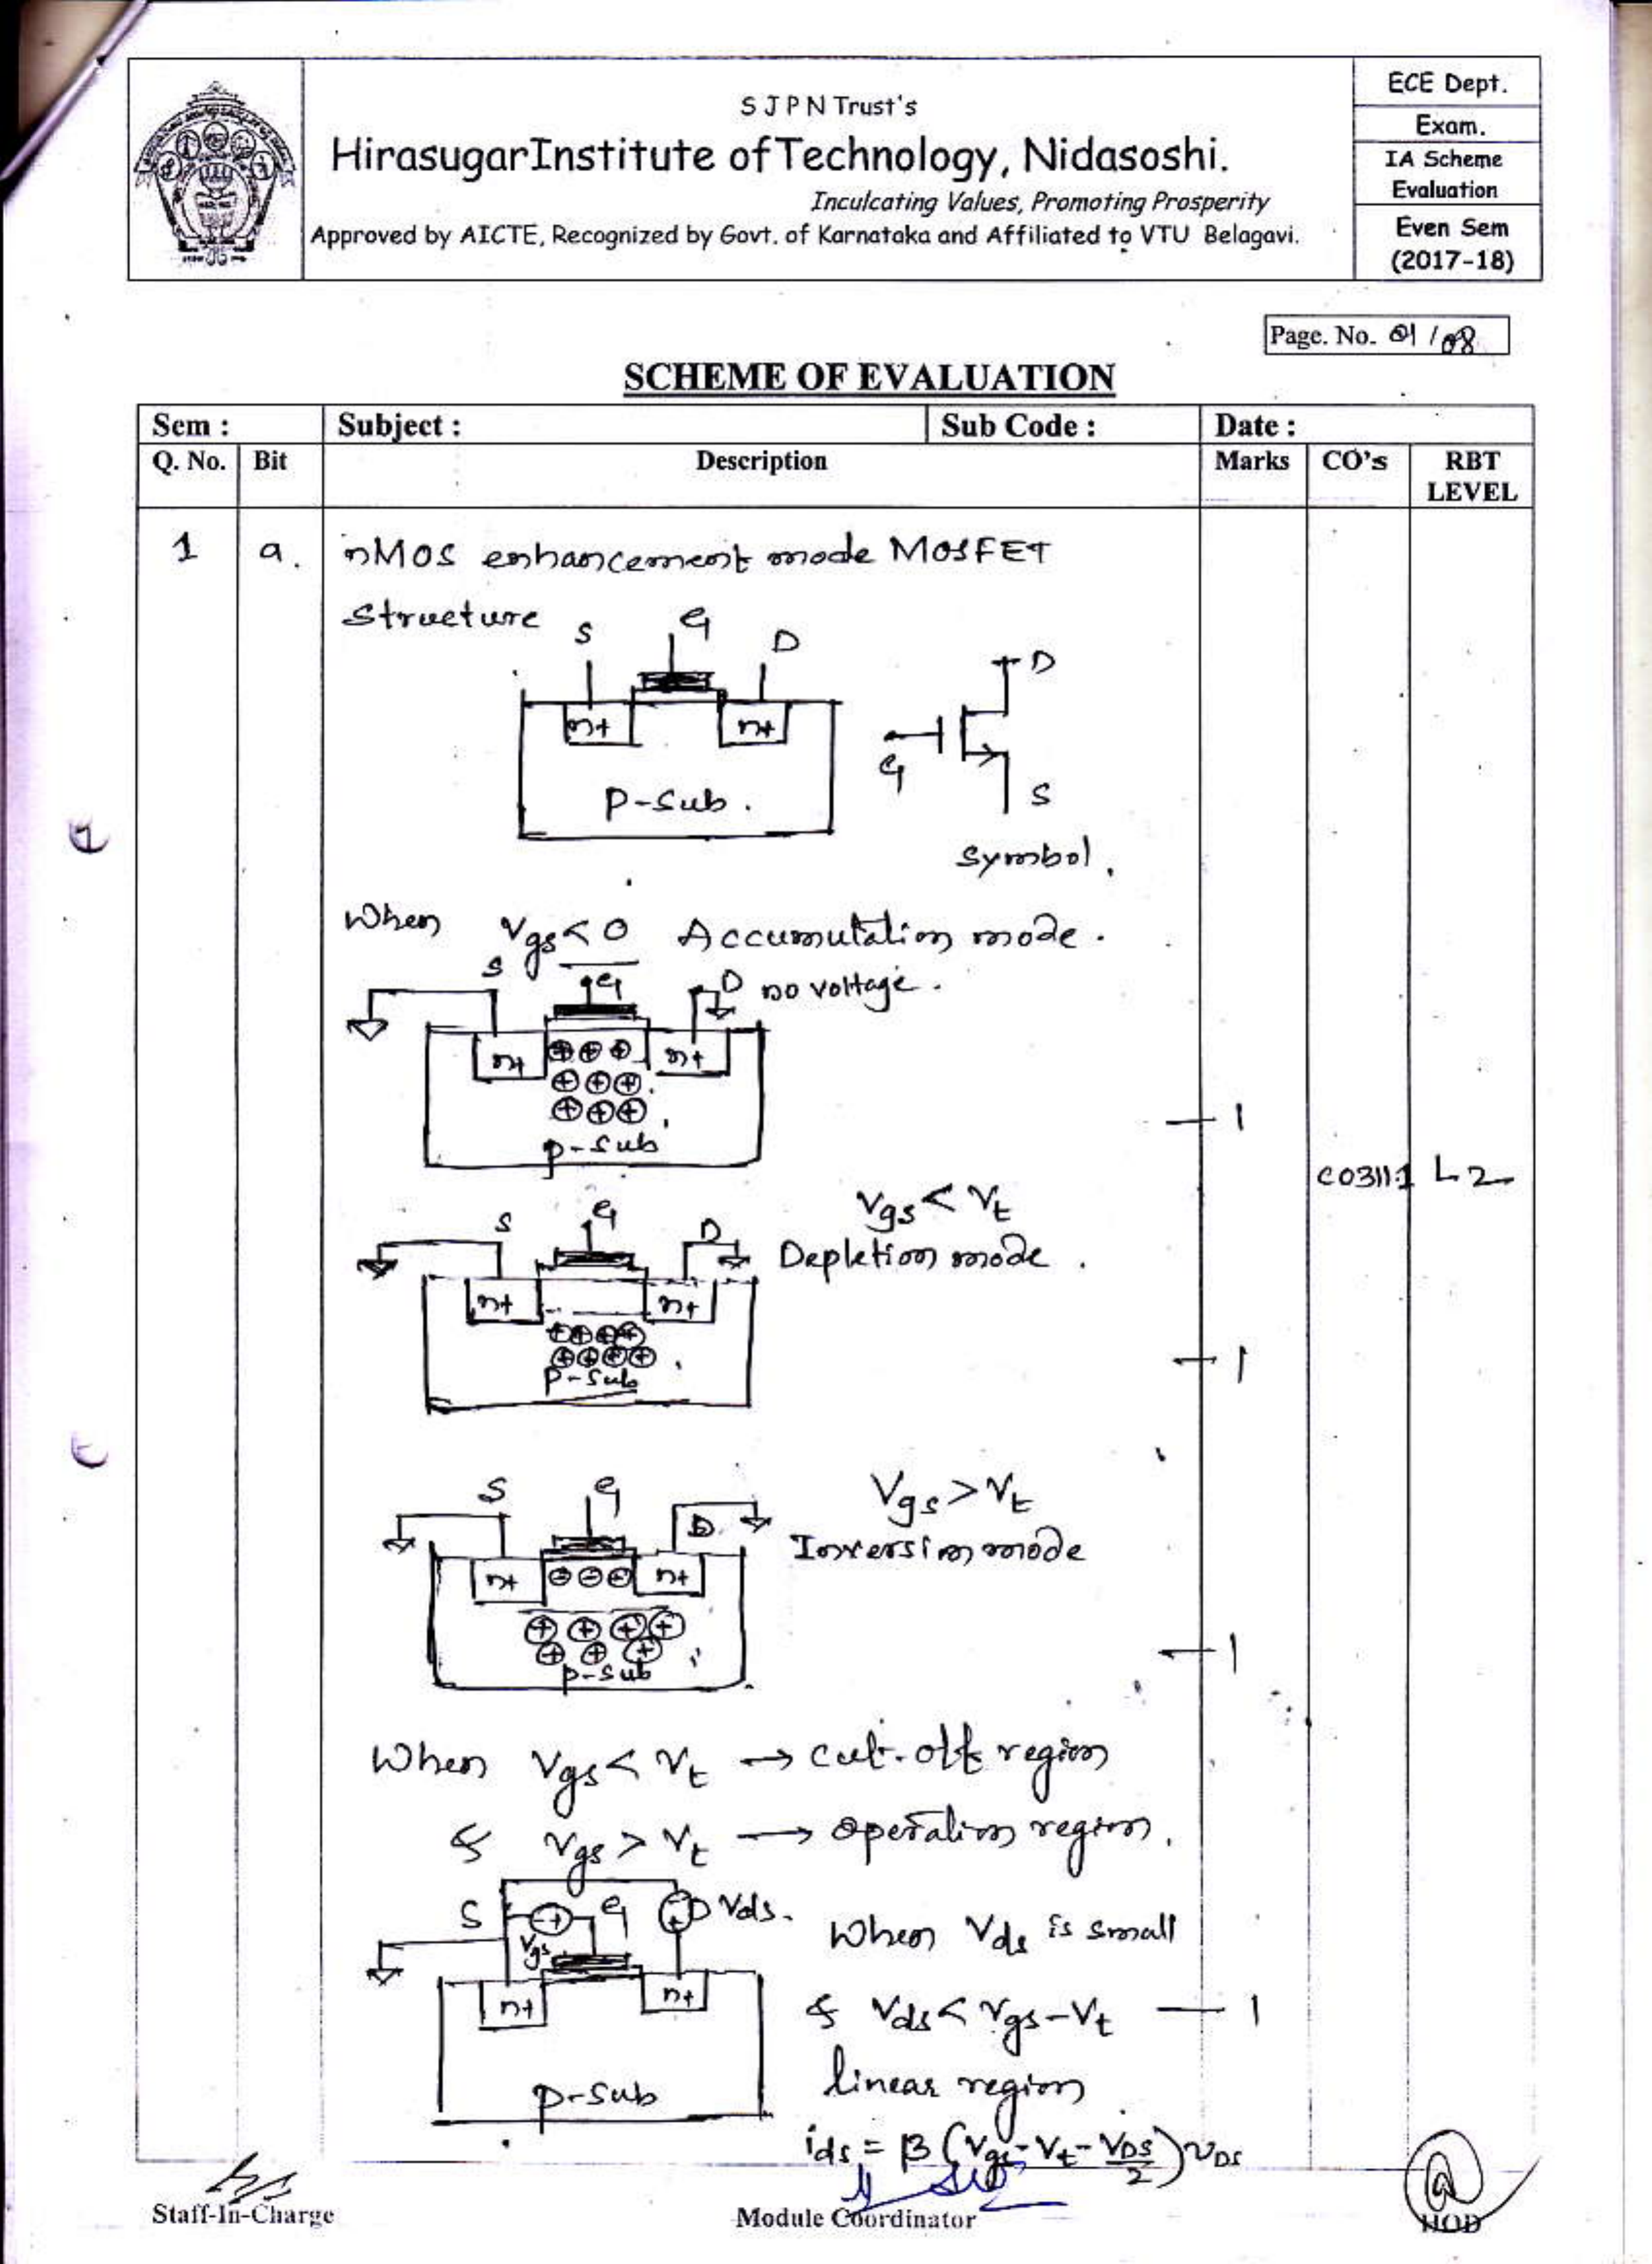 S J P N Trust's
HirasugarInstitute ofTechnology, Nidasoshi.
Inculcating Values, Promoting Prosperity
Approved by AICTE, Recognized by Govt. of Karnataka and Affiliated to VTU Belagavi.
ECE Dept.
Exam.
IA Scheme
Evaluation
Even Sem
(2017-18)
Page. No. 01/08
SCHEME OF EVALUATION
Sem : Subject : Sub Code : Date :
Q. No. Bit Description Marks CO's RBT
LEVEL
1 a. nMOS enhancement mode MOSFET
Structure
S G D
n+ n+
P-Sub.
D
G
S
Symbol.
When Vgs<0 Accumulation mode.
S G D no voltage.
n+ n+
p-sub
1
CO311.1 L2
Vgs < Vt
S G D Depletion mode.
n+ n+
P-Sub
1
Vgs > Vt
S G D Inversion mode
n+ n+
p-sub
1
When Vgs < Vt → cut-off region
& Vgs > Vt → operation region.
S G Vds.
Vgs
When Vds is small
n+ n+
& Vds < Vgs-Vt 1
linear region
p-sub
ids = β (Vgs-Vt-VDS/2)VDS
Staff-In-Charge
Module Coordinator
HOD